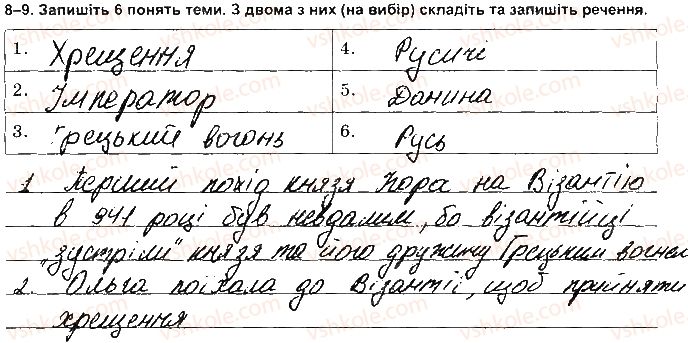 8–9. Запишіть 6 понять теми. З двома з них (на вибір) складіть та запишіть речення.
1. Хрещення 4. Русичі
2. Імператор 5. Данина
3. Грецький вогонь 6. Русь
1 Перший похід князя Ігора на Візантію
в 941 році був невдалим, бо візантійці
„зустріли" князя та його дружину Грецьким вогнем
2. Ольга поїхала до Візантії, щоб прийняти
хрещення